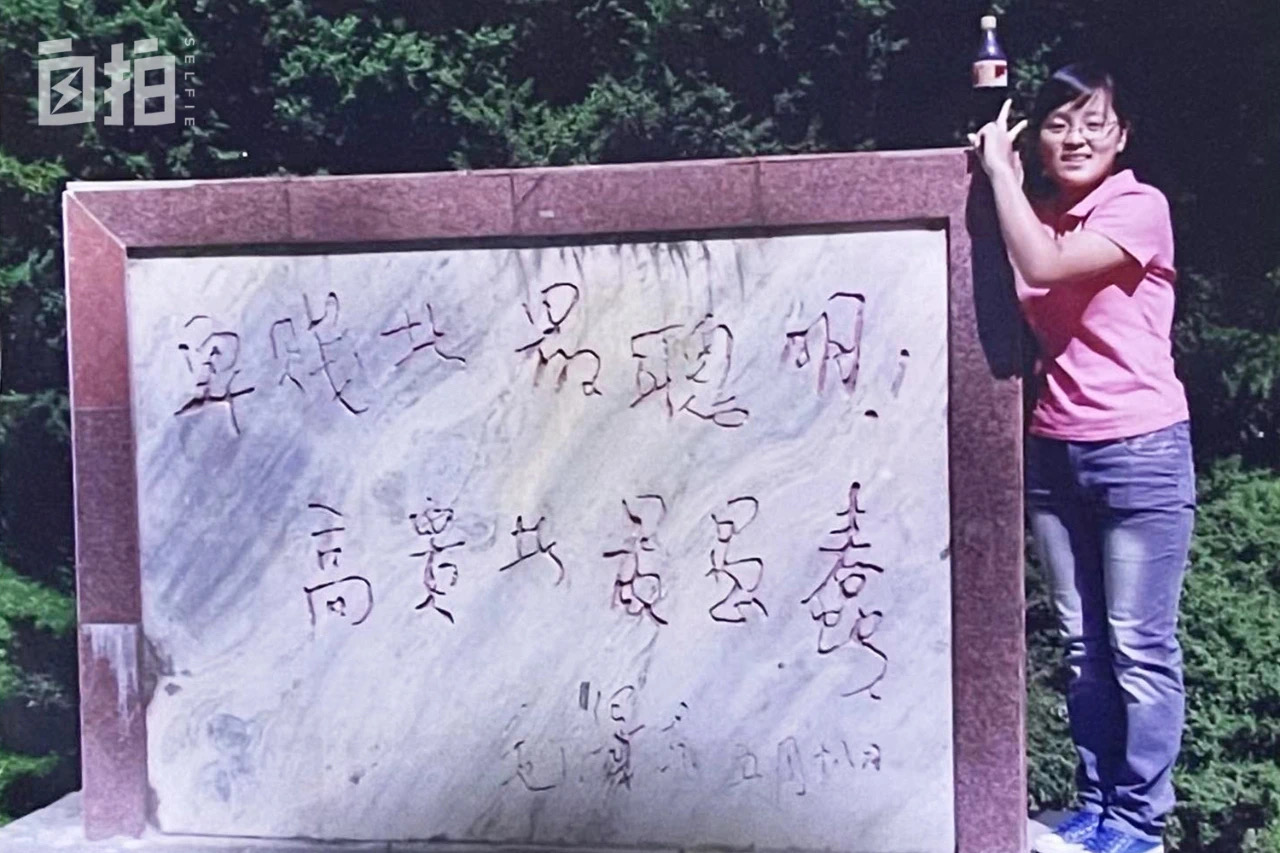 自拍
SELFIE
卑贱者最聪明；
高贵者最愚蠢
毛泽东
五月十八日